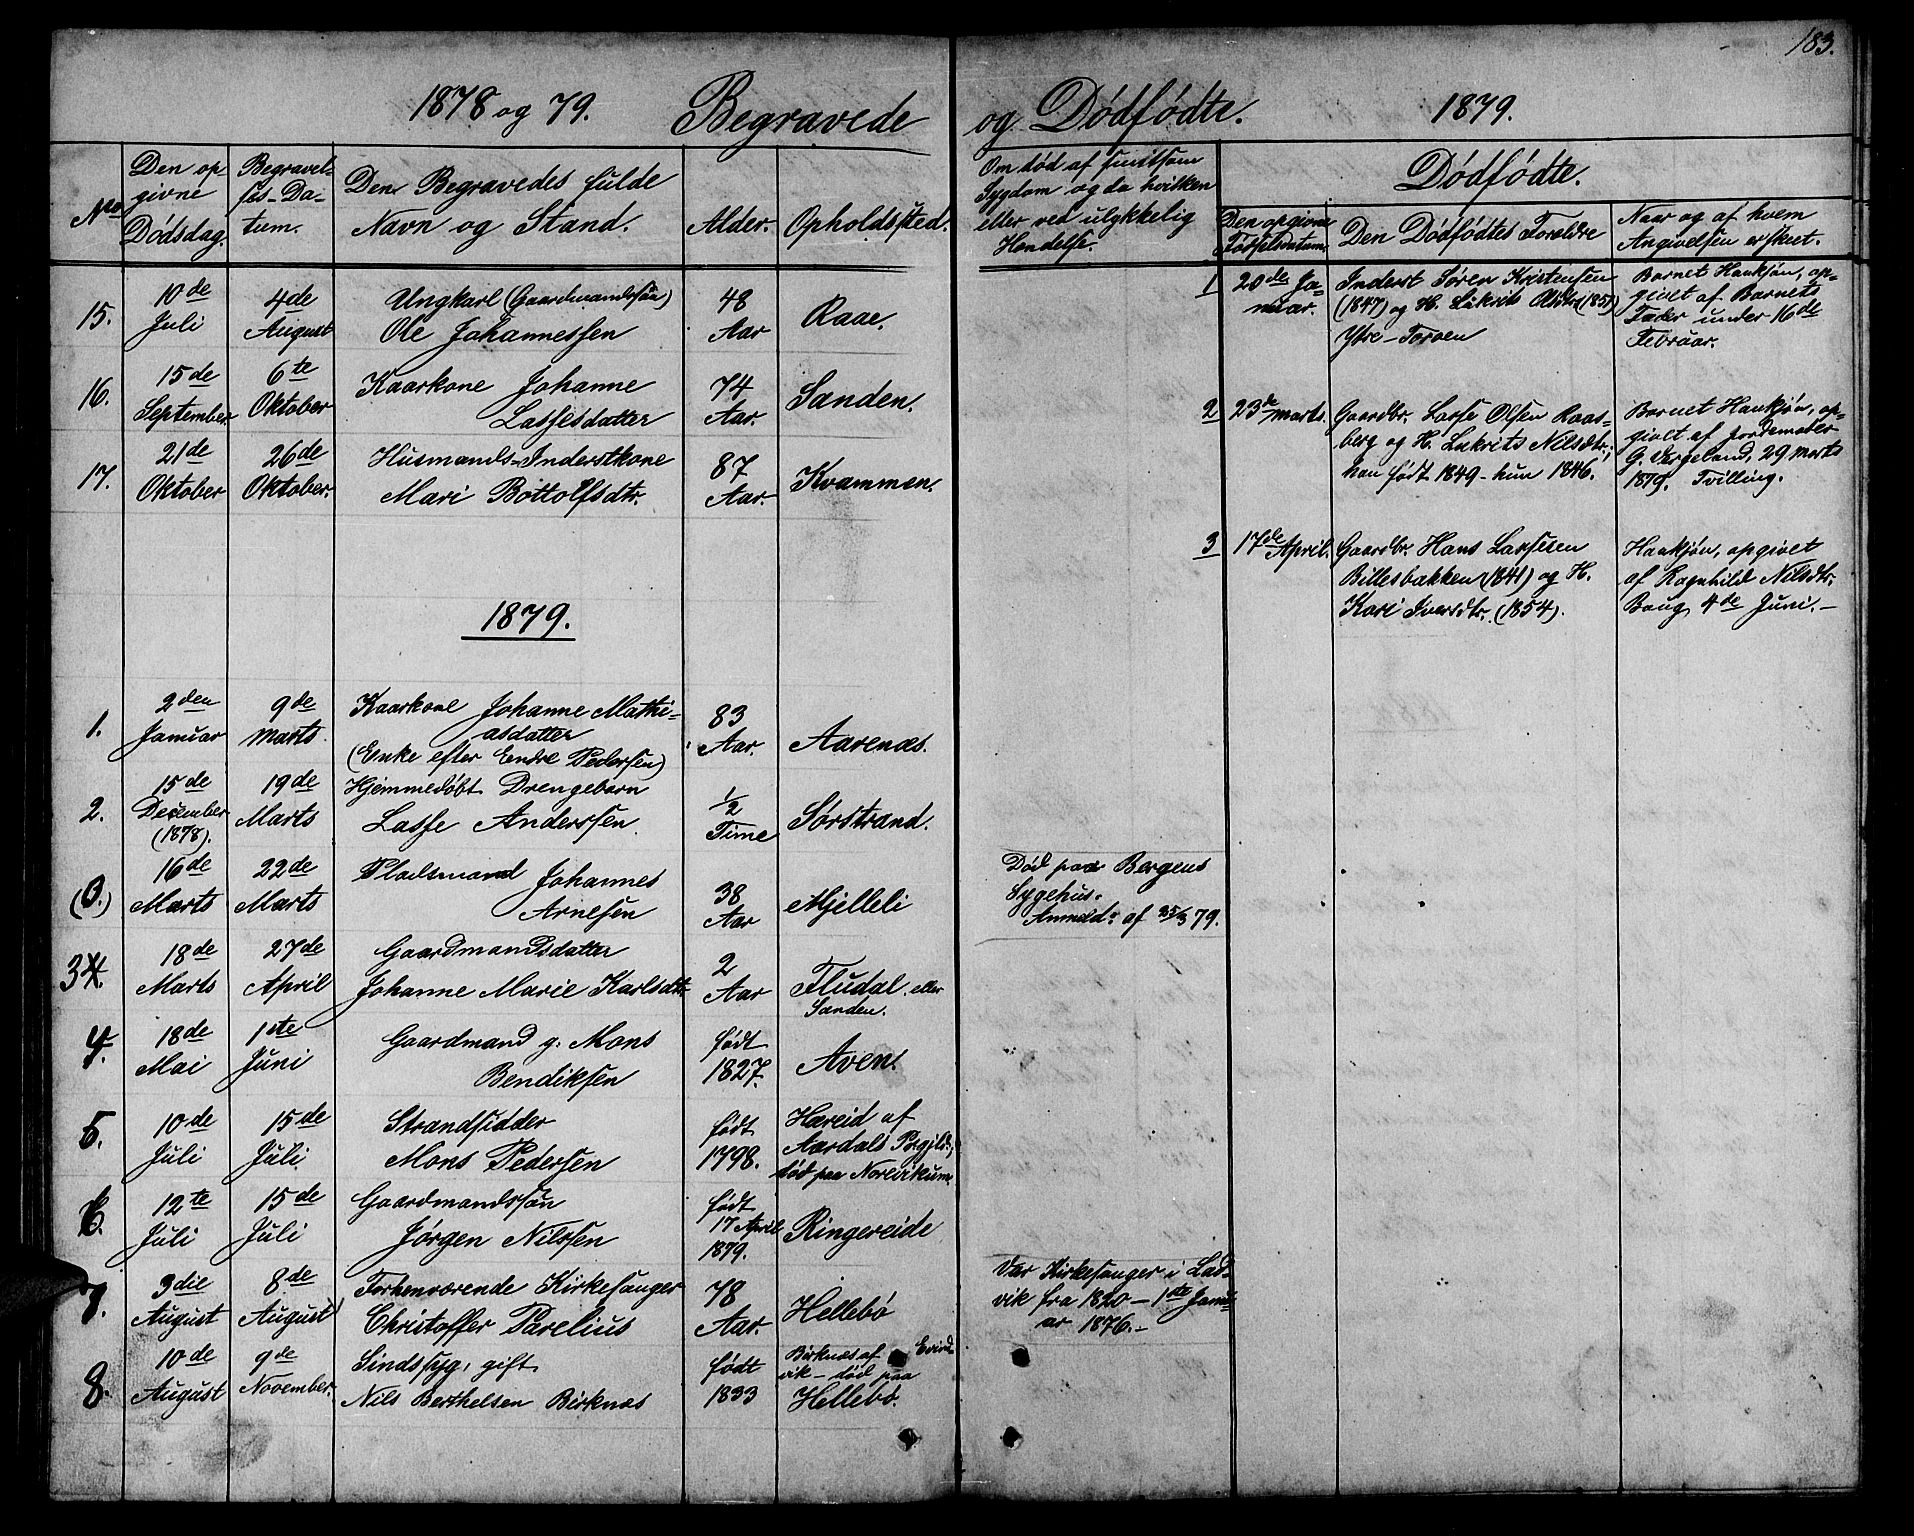 183.
1878 og 79. Begravede og Dødfødte. 1879.
No
Den opgivne Dødsdag.
Begravelses-Datum.
Den Begravedes fulde Navn og Stand.
Alder.
Opholdssted.
Om død af smitsom Sygdom og da hvilken eller ved ulykkelig Hendelse.
15.
10de Juli
4de August
Ungkarl (Gaardmandssøn)
Ole Johannessen
48 Aar
Raae.
16.
15de September
6te Oktober
Kaarkone Johanne
Lassesdatter
74 Aar.
Sanden.
17.
21de Oktober
26de Oktober.
Husmands-Inderstkone
Mari Bottolfsdtr.
87 Aar.
Kvammen.
1879.
1.
2den Januar
9de Marts.
Kaarkone Johanne Mathi-
asdatter
(Enke efter Endre Pedersen)
83 Aar.
Aarenæs.
2.
15de December (1878).
19de Marts
Hjemmedøbt Drengebarn
Lasse Anderssen.
1/2 Time
Sørstrand.
(3.)
16de Marts
22de Marts
Pladsmand Johannes
Arnesen
38 Aar
Mjelleli
Død paa Bergens
Sygehus.
Anmeld. af 25/3 79.
3
18de Marts
27de April
Gaardmandsdatter
Johanne Marie Karlsdtr.
2 Aar
Fludal. eller
Sanden.
4.
18de Mai
1ste Juni
Gaardmand g. Mons
Bendiksen
født 1827.
Aven.
5.
10de Juli
15de Juli.
Strandsidder
Mons Pedersen
født 1798.
Hæreid af
Aardals Prgjld.,
død paa Norevikum.
6.
12te Juli
15de Juli
Gaardmandssøn
Jørgen Nilssen
født
17 April
1879.
Ringereide
7.
3die August
8de August
Forhenværende Kirkesanger
Christoffer Parelius
78 Aar.
Hellebø
Var Kirkesanger i Lad-
vik fra 1820 - 1ste Janu-
ar 1876.-
8.
10de August
9de November.
Sindssyg, gift
Nils Berthelsen Birknæs
født 1833
Birknæs af Evind-
vik - død paa
Hellebø.
Dødfødte.
Den opgivne Fødselsdatum.
Den Dødfødtes Forældre
Naar og af hvem Angivelsen er skeet.
1
20de Ja-
nuar.
Inderst Søren Kristensen
(1847) og H. Lukrits Olsdtr (1851)
Ytre-Torven
Barnet Hankjøn, op-
givet af Barnets
Fader under 16de
Februar.
2
23de Marts.
Gaardbr. Lasse Olsen Raas-
berg og H. Lukrits Nilsdtr.;
han født 1849 - hun 1846.
Barnet Hankjøn, op-
givet af Jordemoder
G. Vergeland, 29 Marts
1879. Tvilling.
3
17de April.
Gaardbr. Hans Lassesen
Billesbakken (1841) og H.
Kari Iversdtr. (1854).
Hankjøn, opgivet
af Ragnhild Nilsdtr.
Boug 4de Juni.-